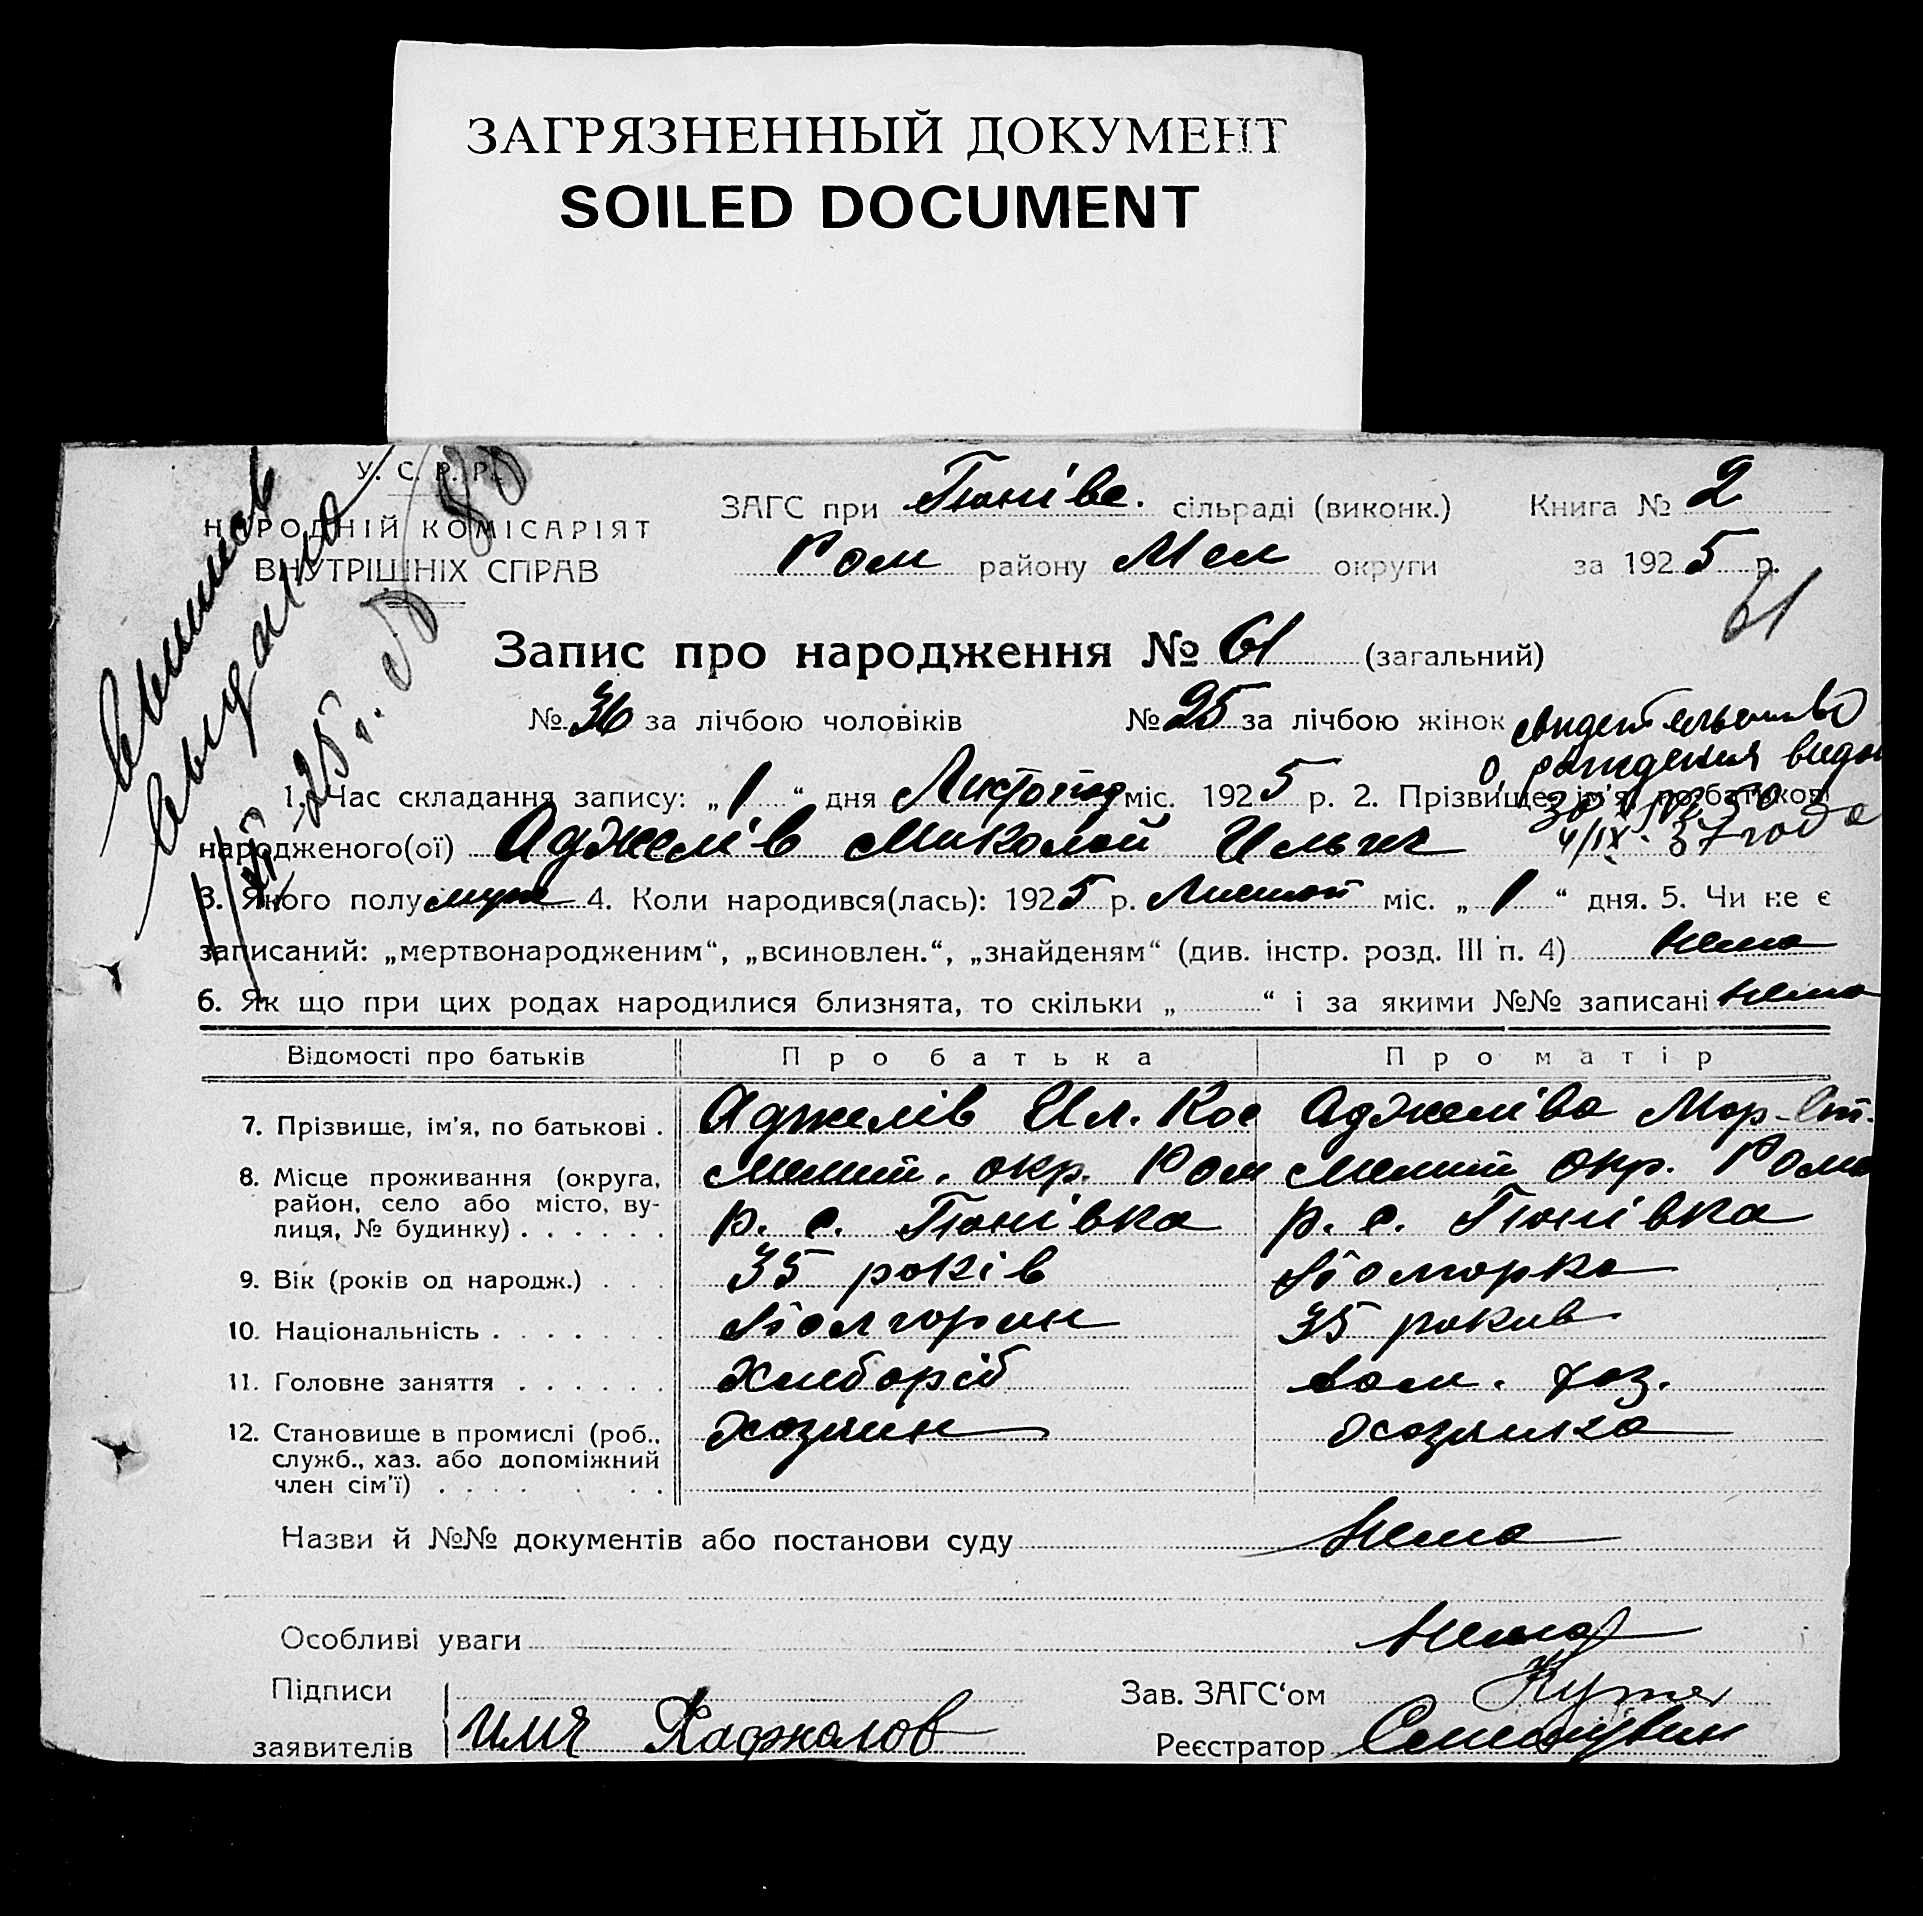 ЗАГРЯЗНЕННЫЙ ДОКУМЕНТ
SOILED DOCUMENT
У. С. Р. Р.
НАРОДНІЙ КОМІСАРІЯТ
ВНУТРІШНІХ СПРАВ
ЗАГС при Тюніве. сільраді (виконк.) Книга № 2
Ром району Мел округи за 1925 р.
61
Запис про народження № 61 (загальний)
№ 36 за лічбою чоловіків № 25 за лічбою жінок
свидетельство
о рождения видан
за №
4/IX. 37 года
1. Час складання запису: „ 1 “ дня Листопад міс. 1925 р. 2. Прізвище, ім'я, по батькові
народженого(ої) Аджелів Миколай Ильич
3. Якого полу муж 4. Коли народився(лась): 1925 р. Листоп міс. „ 1 “ дня. 5. Чи не є
записаний: „мертвонародженим“, „всиновлен.“, „знайденям“ (див. інстр. розд. III п. 4) нема
6. Як що при цих родах народилися близнята, то скільки „ “ і за якими №№ записані нема
Відомості про батьків Про батька Про матір
7. Прізвище, ім'я, по батькові . Аджелів Ил. Кос Аджеліва Мар. Ст.
8. Місце проживання (округа, Мелит. окр. Ром Мелит окр. Рома
район, село або місто, ву-
лиця, № будинку) . . . . . . р. с. Тюнівка р. с. Тюнівка
9. Вік (років од народж.) . . . 35 років Болгорка
10. Національність . . . . . . . Болгорин 35 рокив
11. Головне заняття . . . . . . Хлиборіб дом. хоз.
12. Становище в промислі (роб., хозяин хозяика
служб., хаз. або допоміжний
член сім'ї) . . . . . . .
Назви й №№ документів або постанови суду нема
Особливі уваги нема
Підписи
заявителів
Зав. ЗАГС'ом
Реєстратор